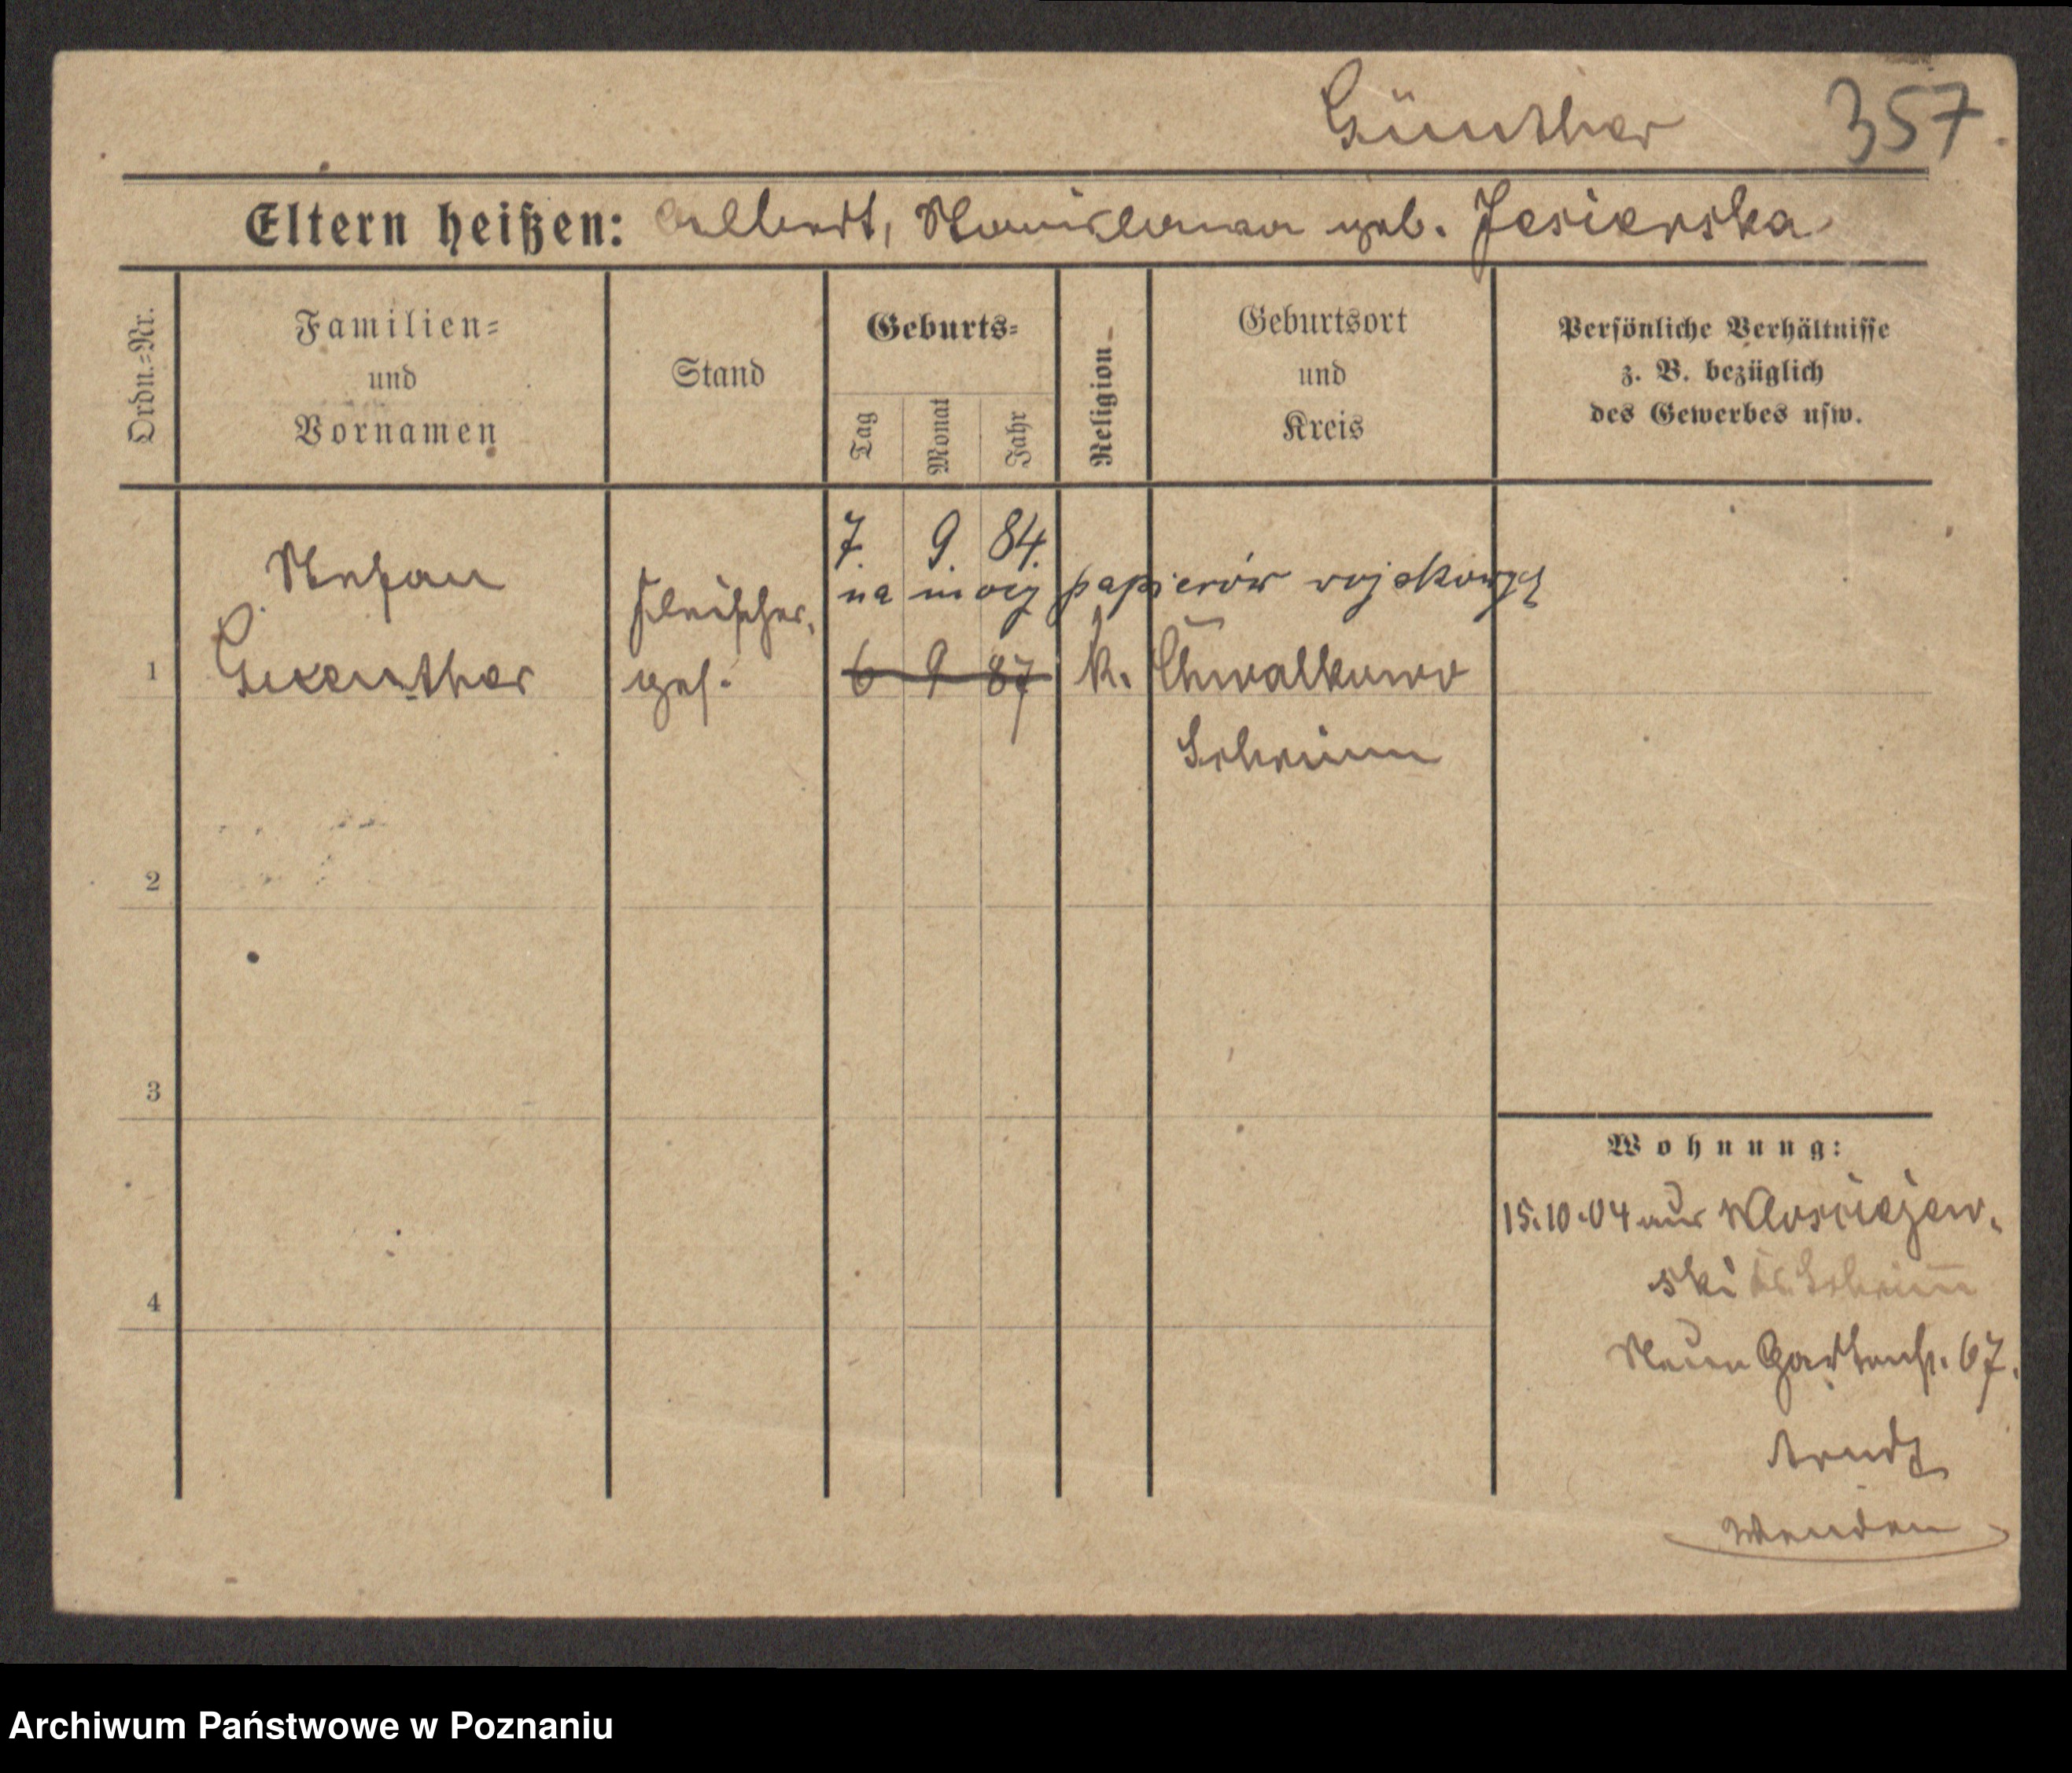 Günther 357.
Eltern heißen: Albert, Stanislawa geb. Jesierska
Ordn.-Nr.
Familien-
und
Vornamen
Stand
Geburts-
Tag
Monat
Jahr
Religion
Geburtsort
und
Kreis
Persönliche Verhältnisse
z. B. bezüglich
des Gewerbes usw.
7. 9. 84.
na mocy papierów wojskowych
Stefan
Fleischer,
1 Guenther ges. 6 9 87 k. Chwalkowo
Schrimm
2
3
4
Wohnung:
15.10.04 aus Wlosciejew-
ski Kr. Schrimm
Neue Gartenstr. 67.
Arndt
Wenden
Archiwum Państwowe w Poznaniu